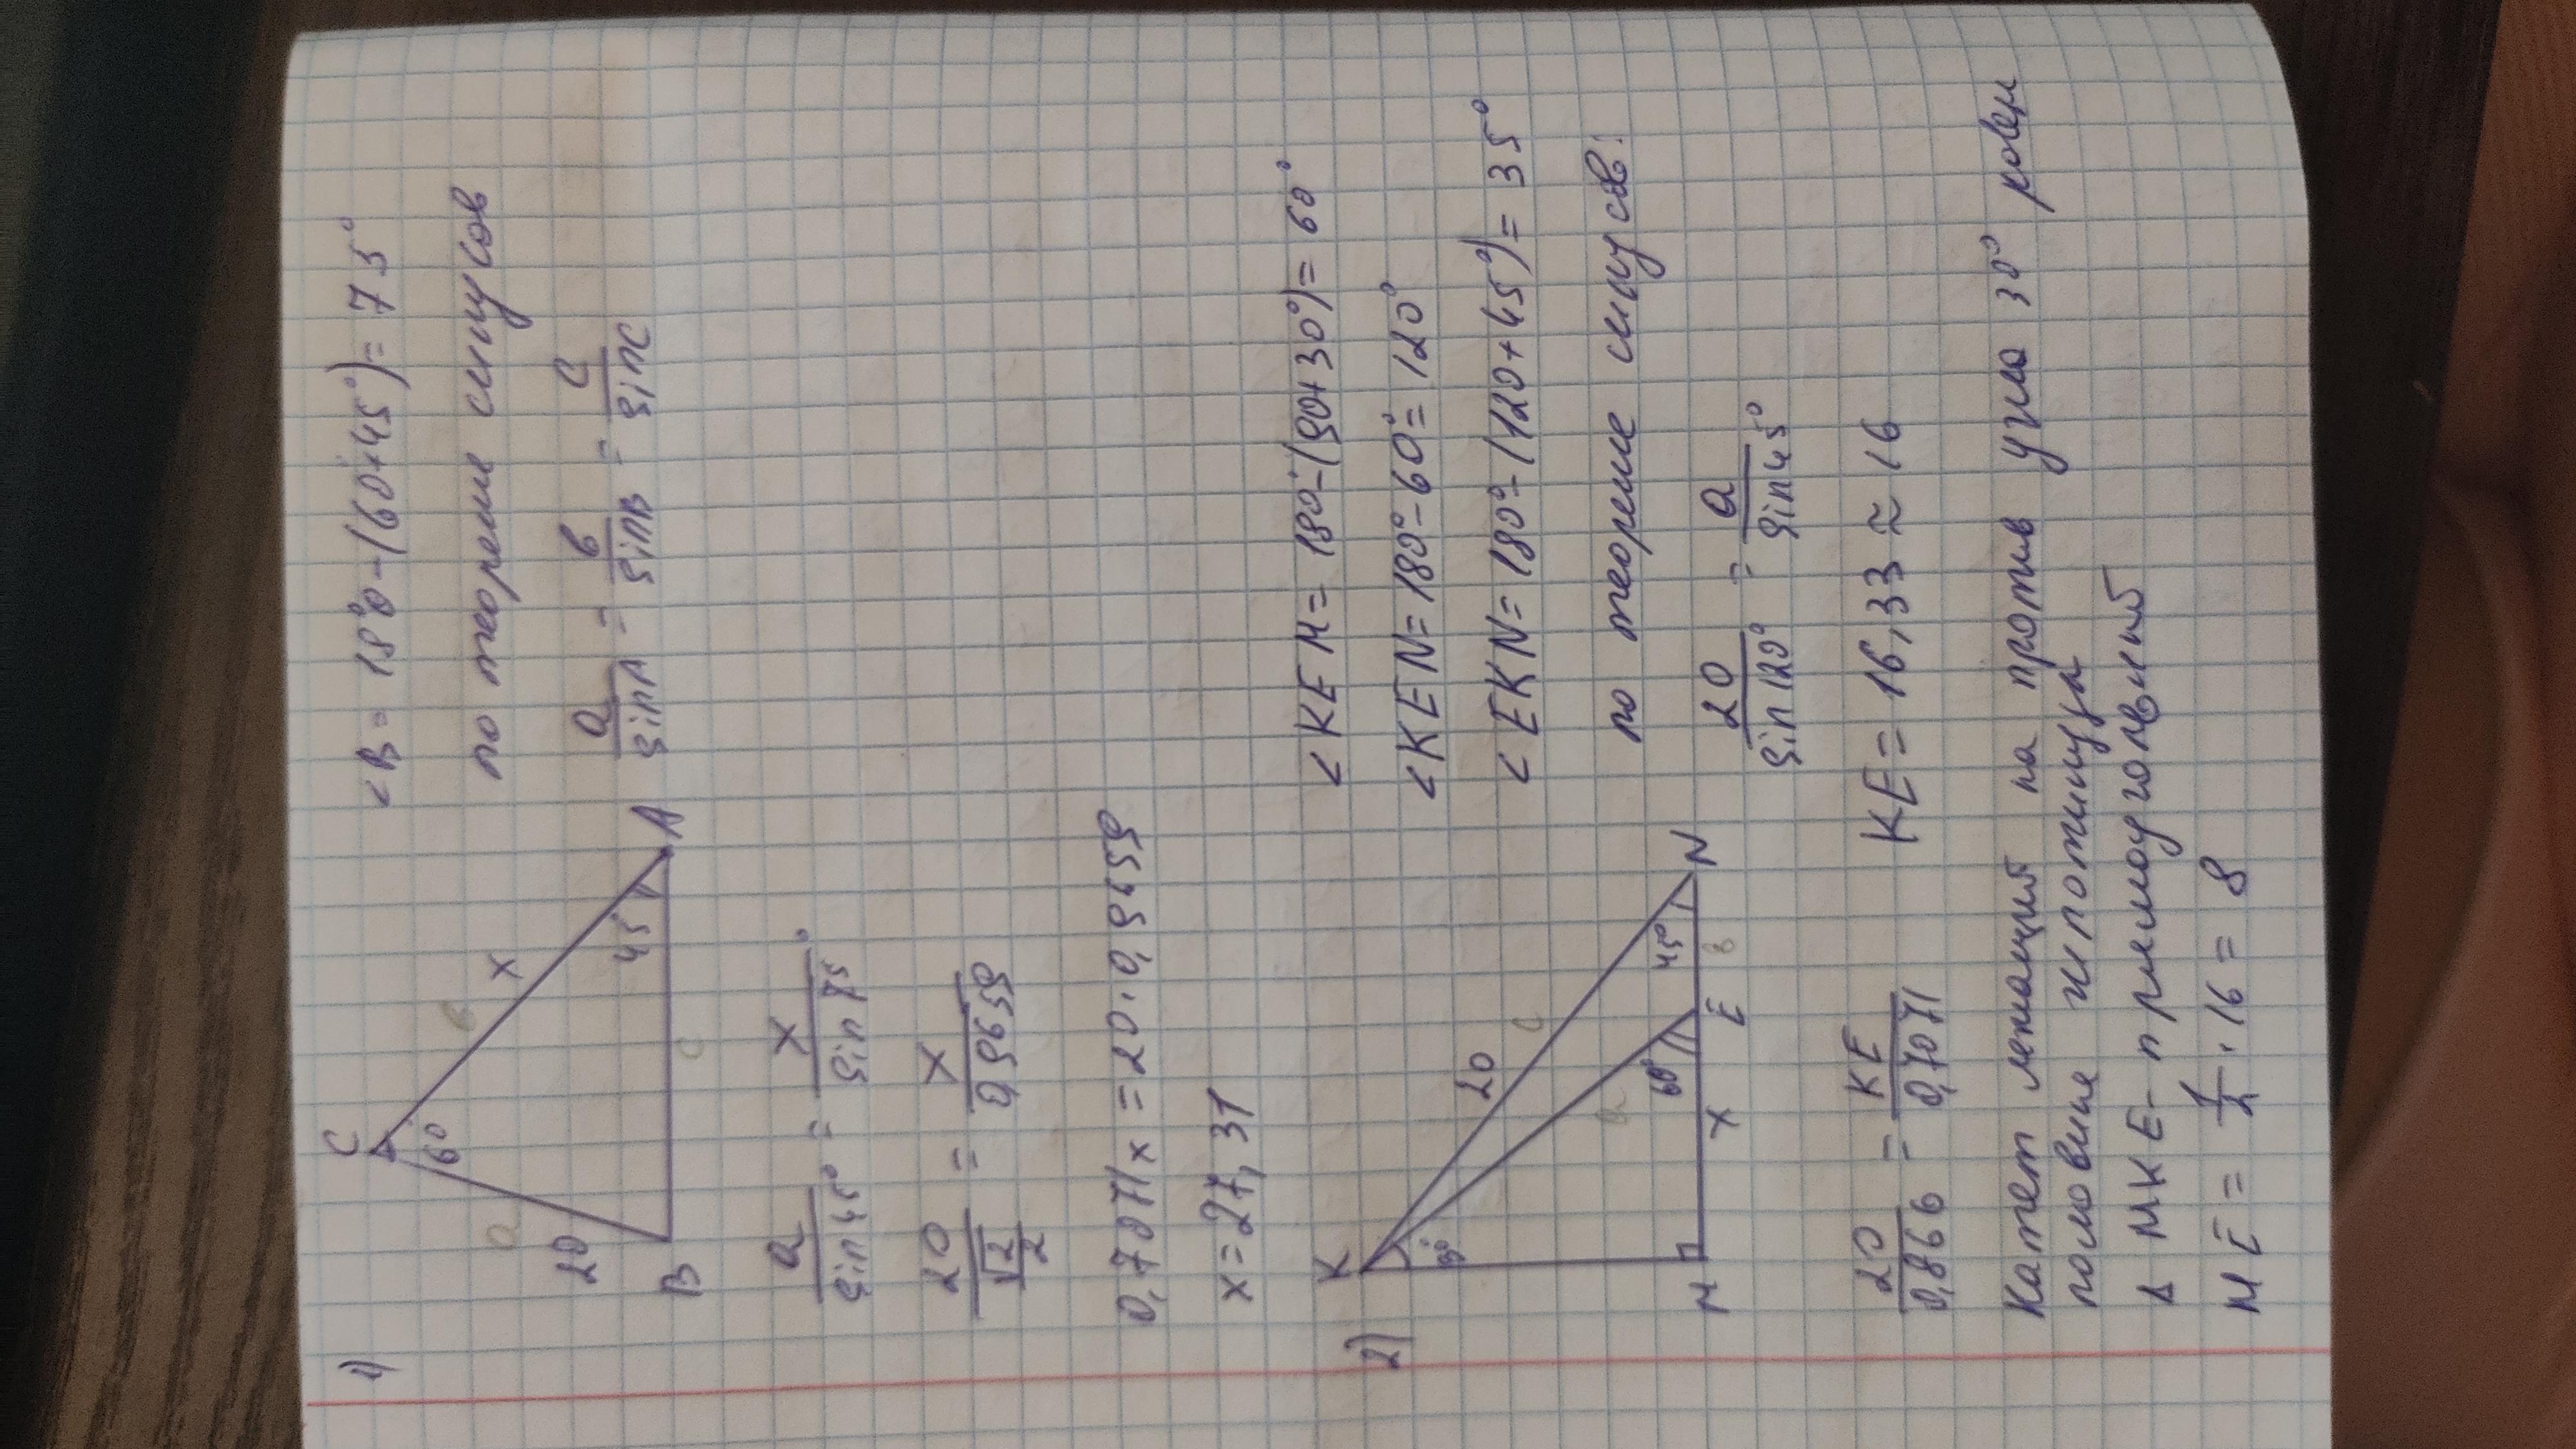 1)
C
60
a
в
x
20
45
B
c
A
<B = 180° - (60+45°) = 75°
по теореме синусов
a/sinA = в/sinB = c/sinC
a/sin45° = x/sin75°
20/(√2/2) = x/0,9659
0,7071x = 20·0,9659
x = 27,31
2)
K
30°
20
c
a
60°
45°
M
x
E
в
N
<KEM = 180° - (90+30°) = 60°
<KEN = 180° - 60° = 120°
<EKN = 180° - (120+45°) = 35°
по теореме синусов:
20/sin120° = a/sin45°
20/0,866 = KE/0,7071
KE = 16,33 ≈ 16
Катет лежащий на против угла 30° равен
половине гипотинуза
∆ MKE - прямоуголвний
ME = 1/2 · 16 = 8